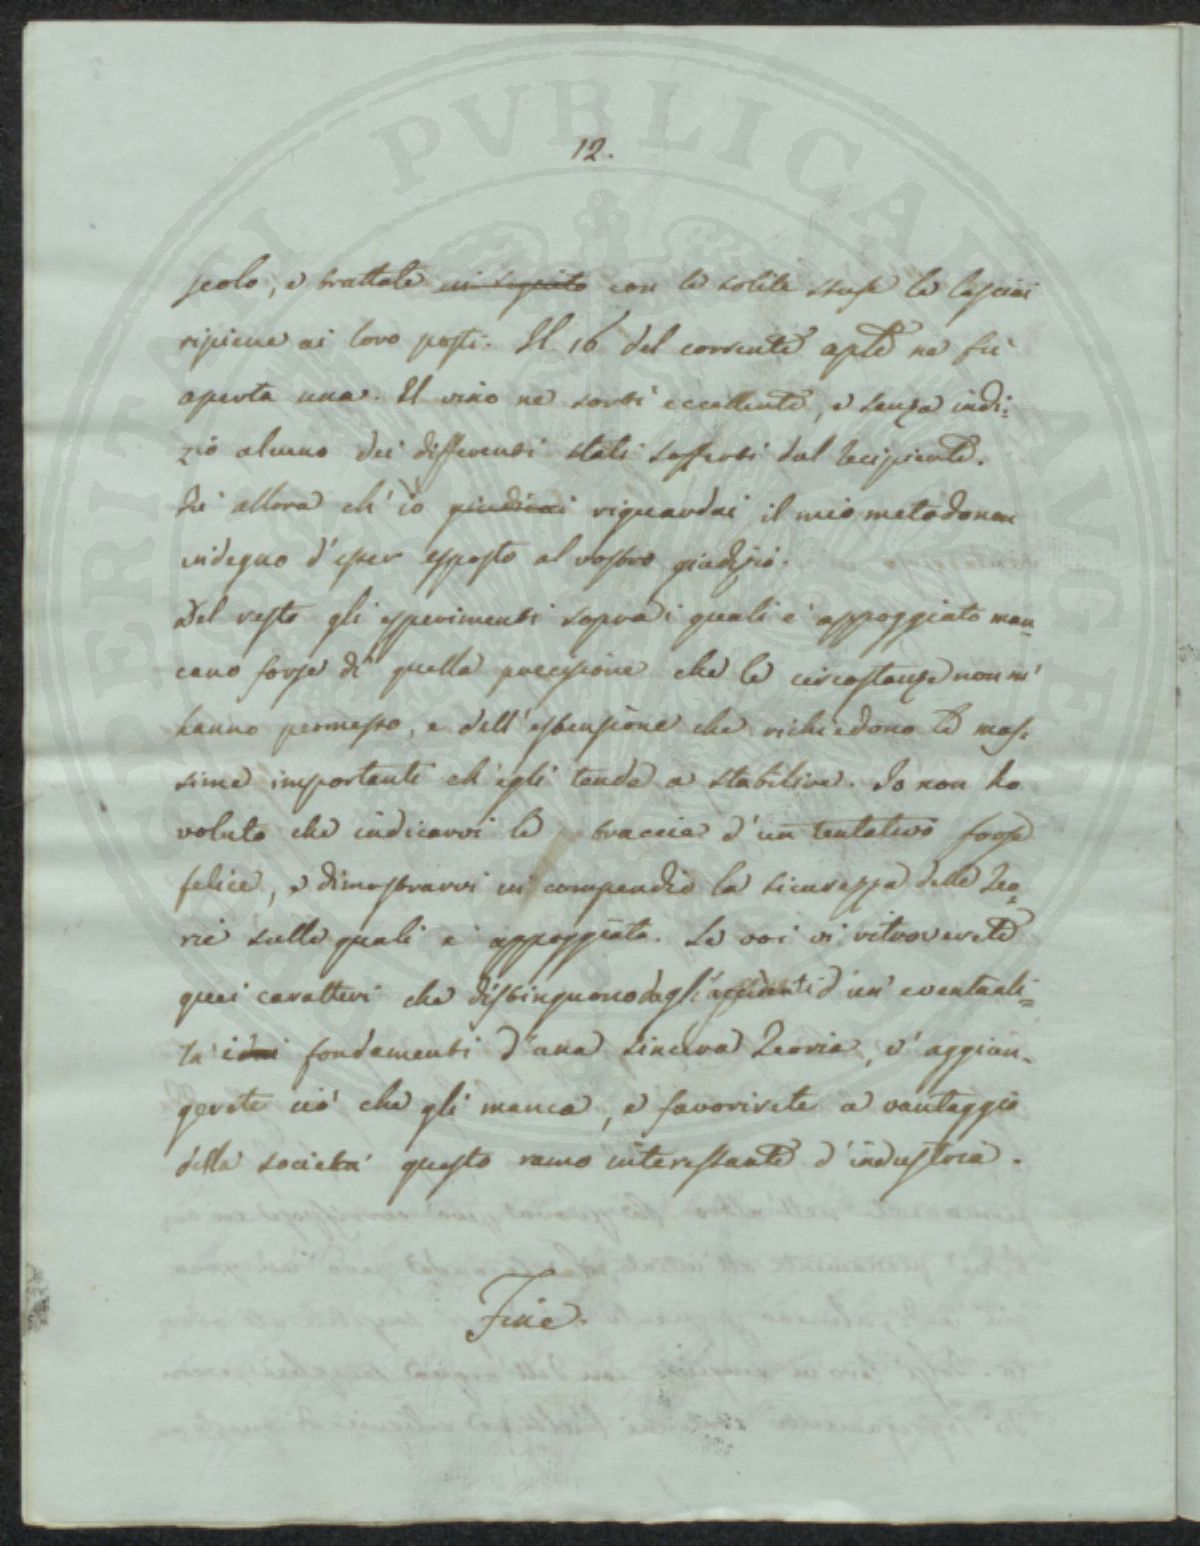 12.
scolo, e trattate in seguito con le solite stufe le lasciai
ripiene ai loro posti. Il 16 del corrente aple ne fù
aperta una. Il vino ne sortì eccellente, e senza indi=
zio alcuno dei differenti stati sofferti dal recipiente.
Fù allora ch'io giudicai riguardai il mio metodo non
indegno d'esser esposto al vostro giudizio.
Del resto gli esperimenti sopra i quali è appoggiato man=
cano forse di quella precisione che le circostanze non m'
hanno permesso, e dell'estensione che richiedono le mas=
sime importanti ch'egli tende a stabilire. Io non ho
voluto che indicarvi le traccia d'un tentativo forse
felice, e dimostrarvi in compendio la sicurezza delle Teo=
rie sulle quali è appoggiato. Se voi vi ritroverete
quei caratteri che distinguono dagl'accidenti d'un'eventuali=
tà i fondamenti d'una sincera Teoria, v'aggiun=
gerete ciò che gli manca, e favorirete a vantaggio
della società questo ramo interessante d'industria.
Fine.
PERITATI PVBLICAE AVGEN